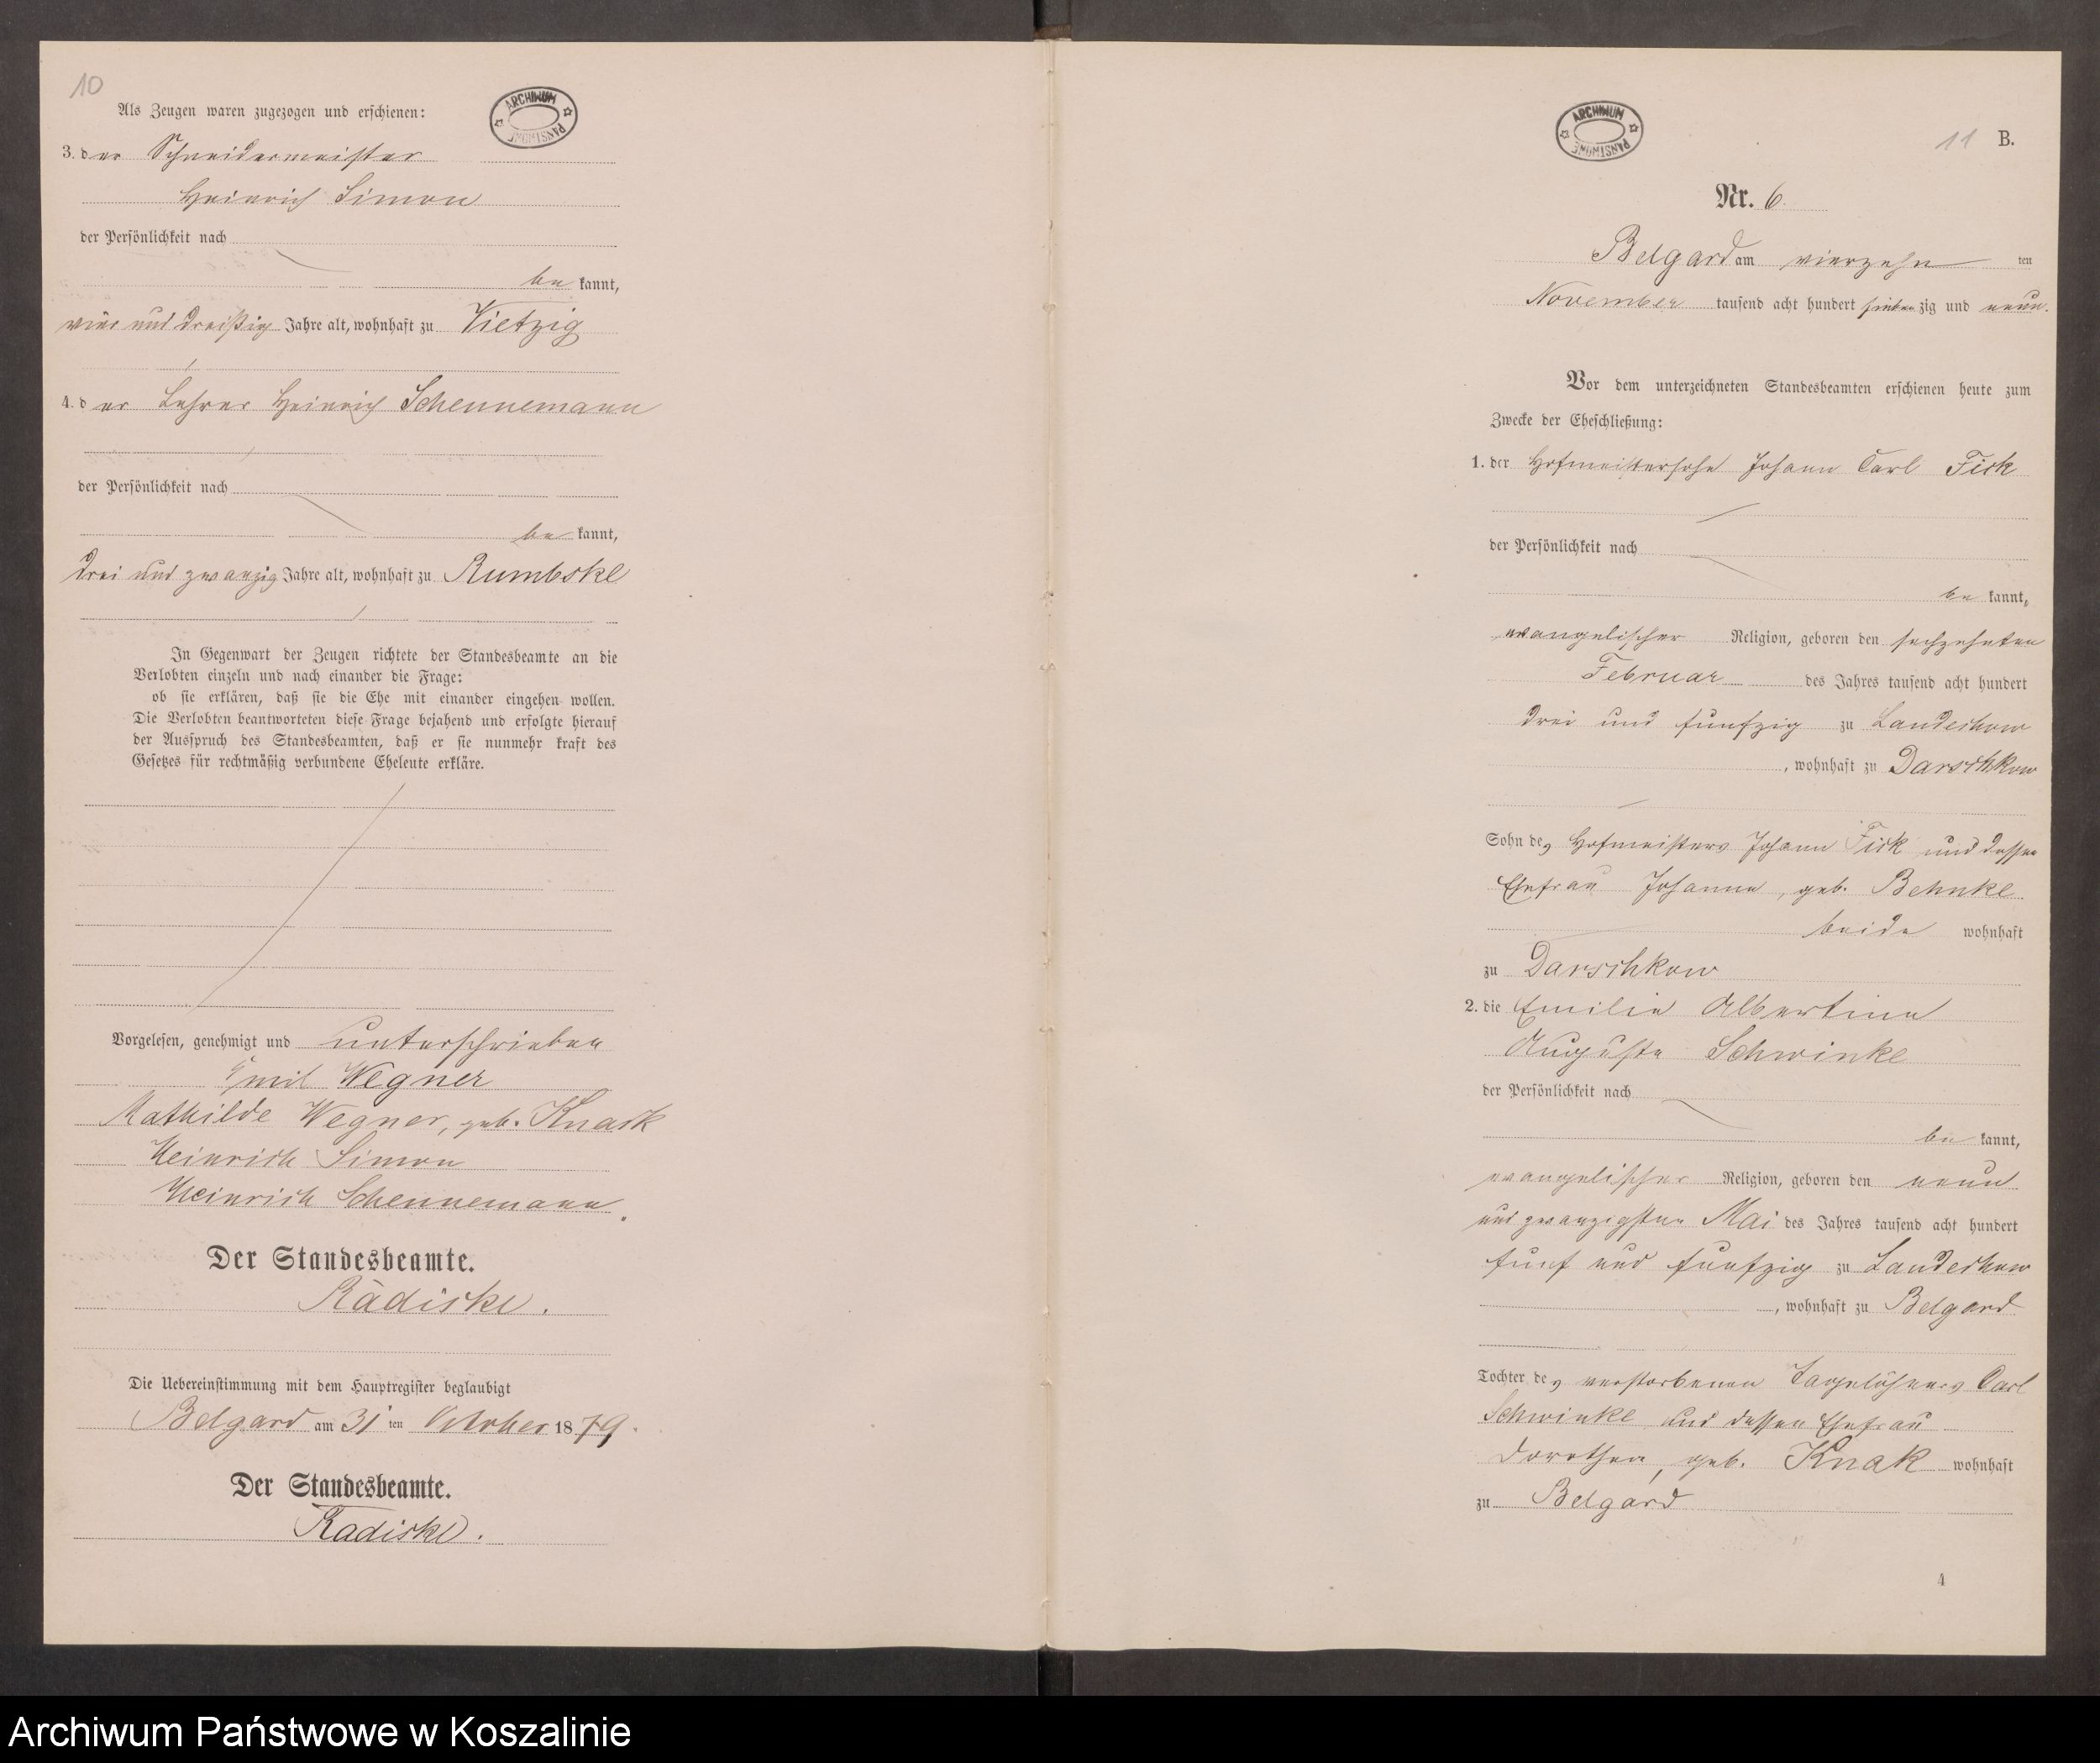 10
Als Zeugen waren zugezogen und erschienen:
3. der Schneidermeister
Heinrich Simon
der Persönlichkeit nach
be kannt,
vier und dreißig Jahre alt, wohnhaft zu Vietzig
4. der Lehrer Heinrich Schennemann
der Persönlichkeit nach
be kannt,
drei und zwanzig Jahre alt, wohnhaft zu Rumbske
In Gegenwart der Zeugen richtete der Standesbeamte an die
Verlobten einzeln und nach einander die Frage:
ob sie erklären, daß sie die Ehe mit einander eingehen wollen.
Die Verlobten beantworteten diese Frage bejahend und erfolgte hierauf
der Ausspruch des Standesbeamten, daß er sie nunmehr kraft des
Gesetzes für rechtmäßig verbundene Eheleute erkläre.
Vorgelesen, genehmigt und unterschrieben
Emil Wegner
Mathilde Wegner, geb. Knack
Heinrich Simon
Heinrich Schennemann.
Der Standesbeamte.
Radiske.
Die Uebereinstimmung mit dem Hauptregister beglaubigt
Belgard am 31 ten October 1879.
Der Standesbeamte.
Radiske.
ARCHIWUM PAŃSTWOWE
ARCHIWUM PAŃSTWOWE
11 B.
Nr. 6.
Belgard am vierzehn ten
November tausend acht hundert siebenzig und neun.
Vor dem unterzeichneten Standesbeamten erschienen heute zum
Zwecke der Eheschließung:
1. der Hofmeistersohn Johann Carl Fick
der Persönlichkeit nach
be kannt,
evangelischer Religion, geboren den sechzehnten
Februar des Jahres tausend acht hundert
drei und funfzig zu Landechow
, wohnhaft zu Darschkow
Sohn des Hofmeisters Johann Fick und dessen
Ehefrau Johanne, geb. Behnke
beide wohnhaft
zu Darschkow
2. die Emilie Albertine
Auguste Schwinke
der Persönlichkeit nach
be kannt,
evangelischer Religion, geboren den neun
und zwanzigsten Mai des Jahres tausend acht hundert
funf und funfzig zu Landechow
, wohnhaft zu Belgard
Tochter des verstorbenen Tagelöhners Carl
Schwinke und dessen Ehefrau
Dorothea, geb. Knak wohnhaft
zu Belgard
4
Archiwum Państwowe w Koszalinie